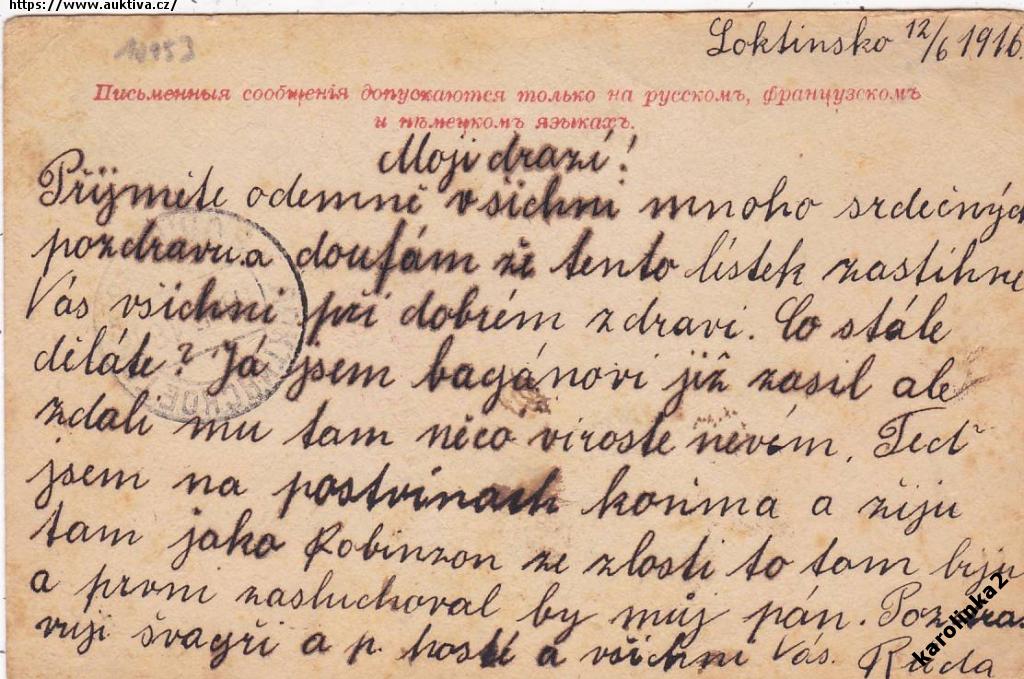 https://www.auktiva.cz/
10953
Loktinsko 12/6 1916.
Письменныя сообщенія допускаются только на русскомъ, французскомъ
и нѣмецкомъ языкахъ.
Moji drazí!
Přijměte odemně všichni mnoho srdečných
pozdravu a doufám že tento lístek zastihne
Vás všichni při dobrém zdravi. Co stále
děláte? Já jsem bagánovi již zasil ale
zdali mu tam něco viroste nevím. Teď
jsem na pastvinach konima a žiju
tam jako Robinzon ze zlosti to tam biju
a prvni zasluchoval by můj pán. Pozdra-
vuji švagři a p. hosti a všichni Vás. Ruda
karolinka2